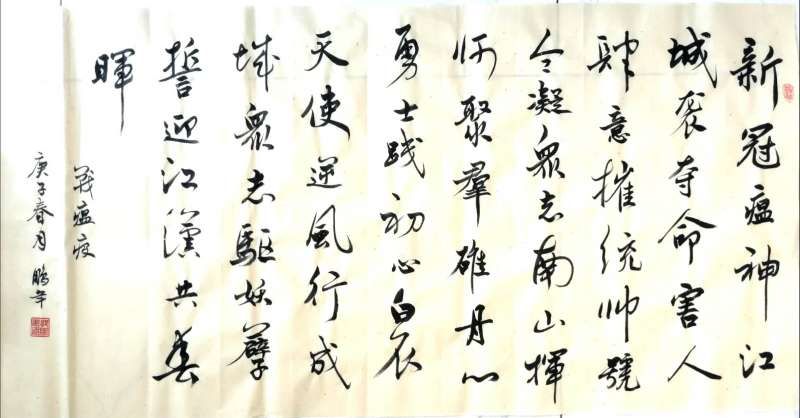 新冠瘟神江
城袭夺命害人
肆意摧统帅號
令凝衆志南山揮
师聚羣雄丹心
勇士践初心白衣
天使逆風行成
城衆志驅妖孽
誓迎江漢共春
暉
战瘟疫
庚子春月 鹏年